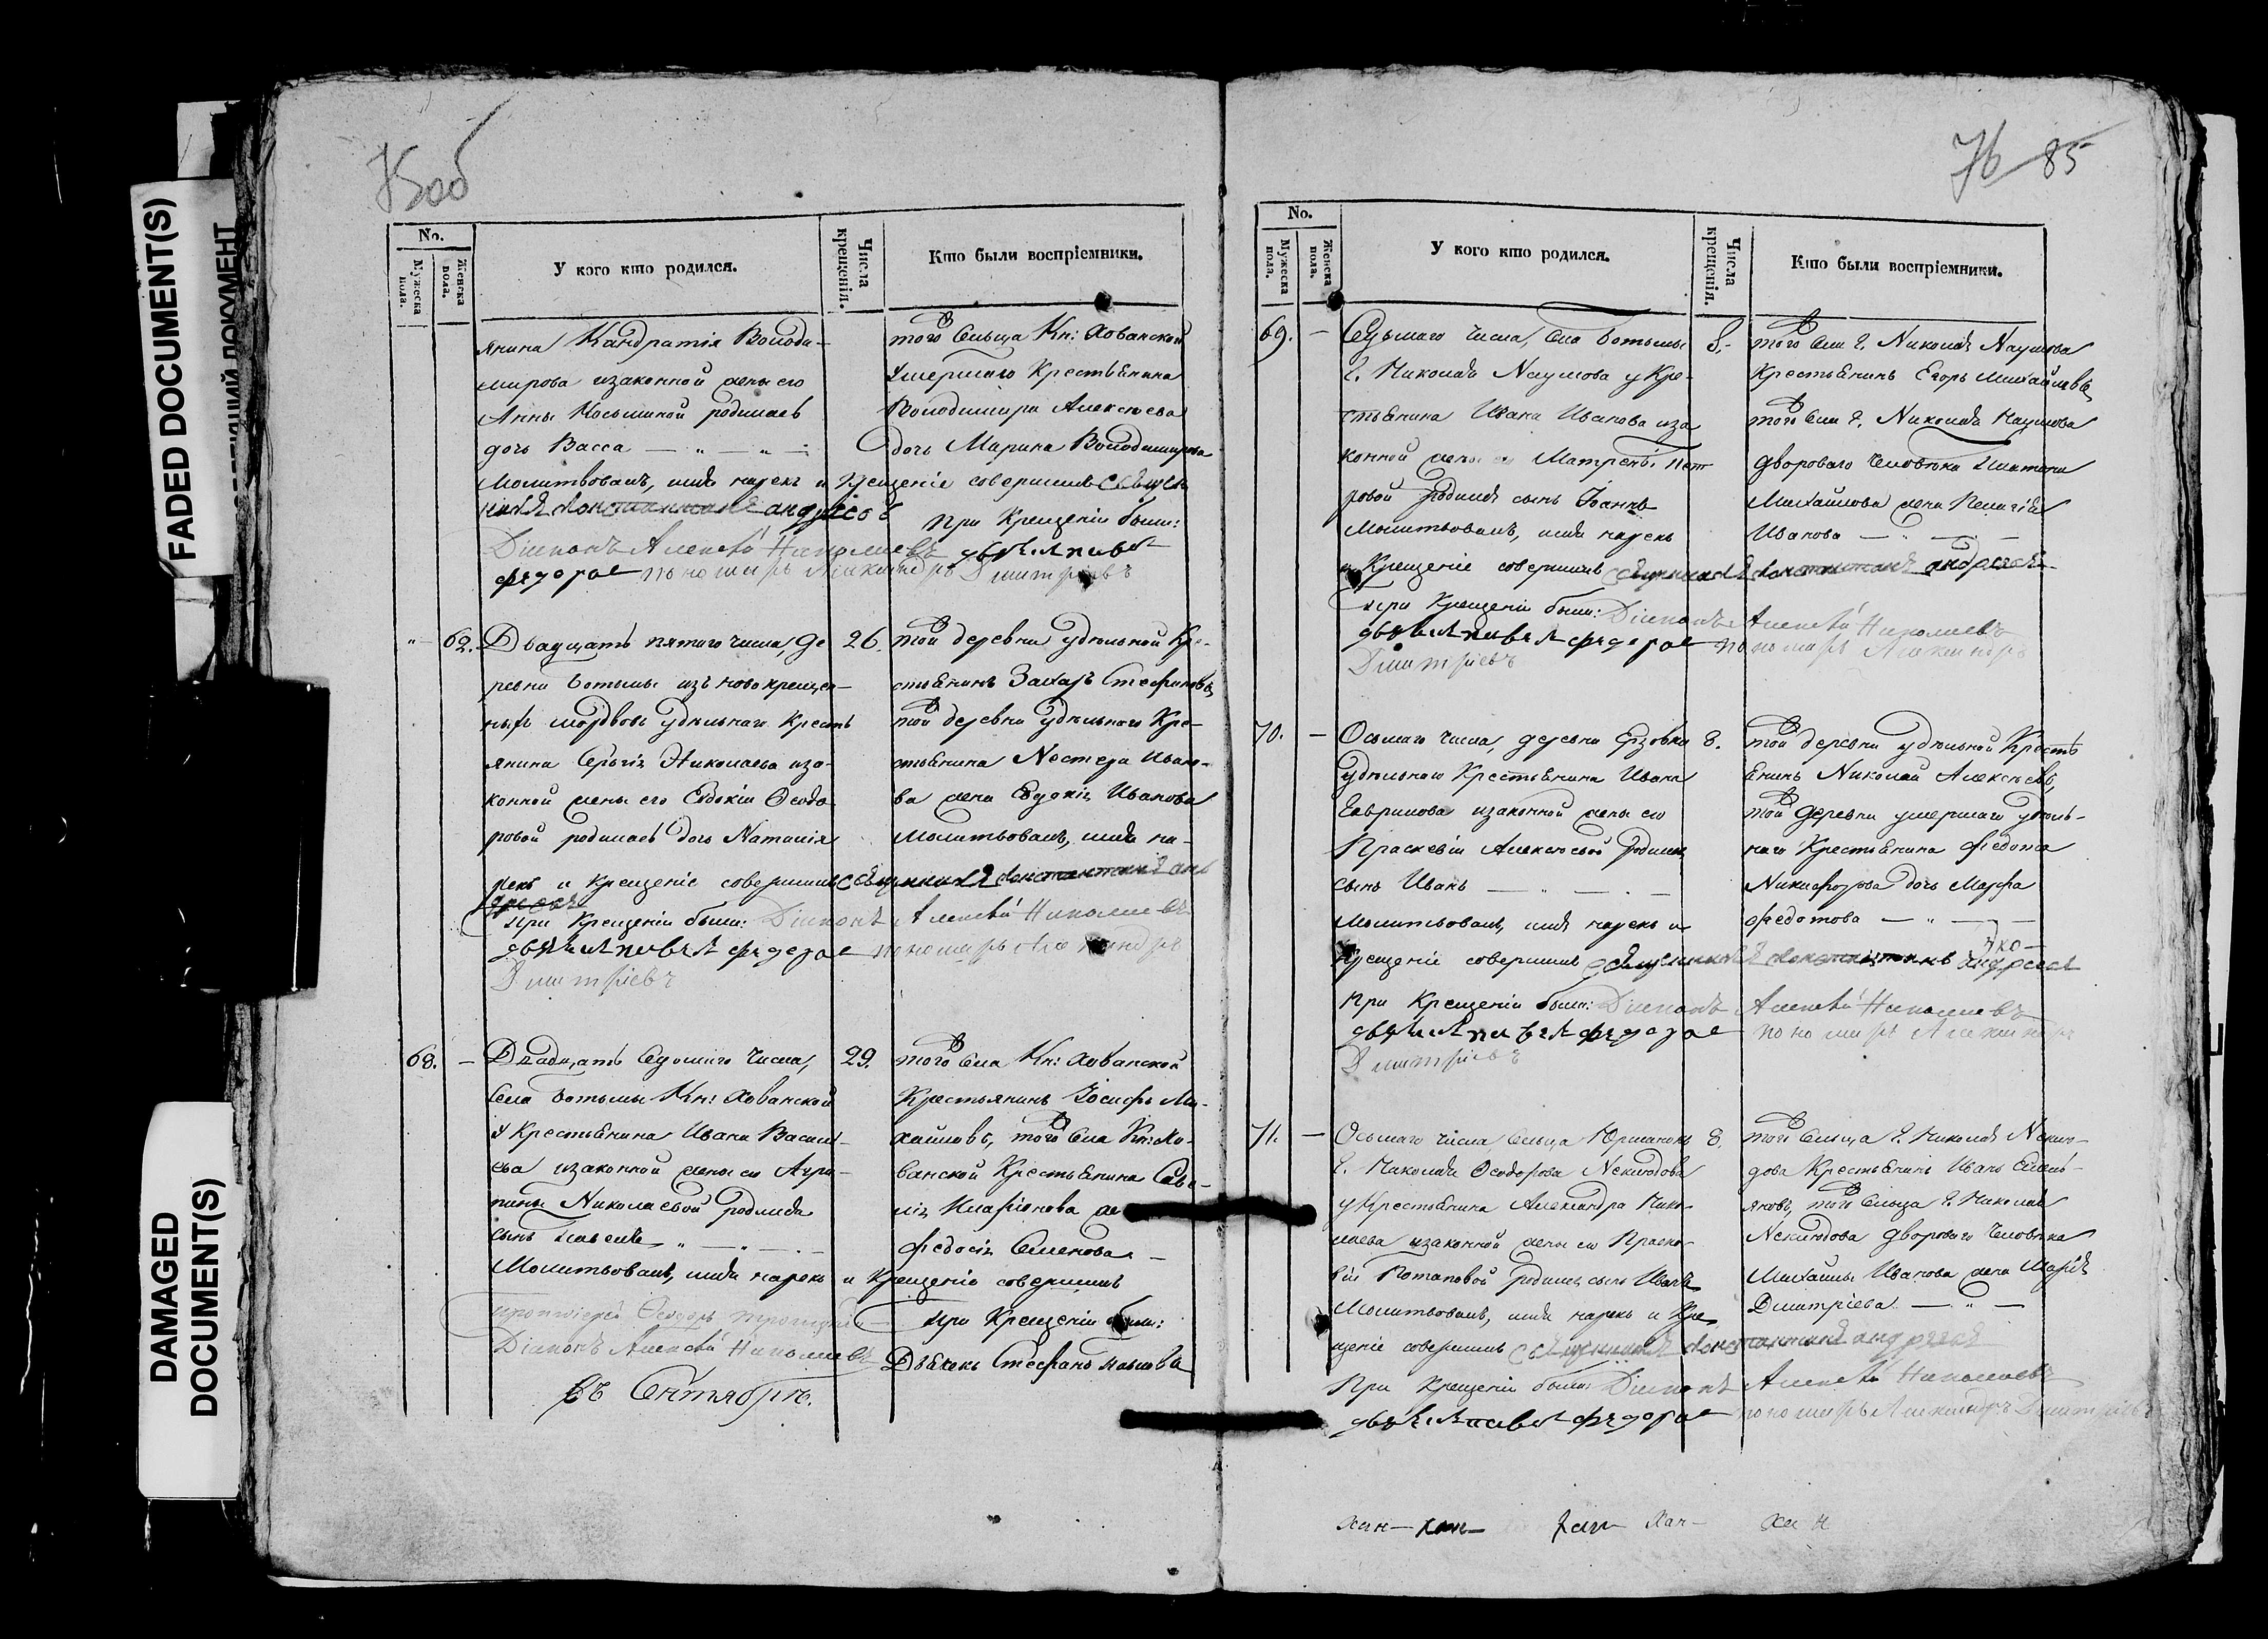 FADED DOCUMENT(S)
DAMAGED
DOCUMENT(S)
75об
No.
Мужеска пола.
Женска пола.
У кого кто родился.
Числа крещенія.
Кто были воспріемники.
янина Кандратія Володи-
мирова изаконной жены его
Анны Косьминой родилась
дочь Васса
того Сельца Кн: Хованской
умершаго Крестьянина
Володимира Алексѣева
дочь Марина Володимирова
Молитвовалъ, имя нарекъ и Крещеніе совершилъ Священ
никъ Константинъ андреевъ
При Крещеніи были:
Діаконъ Алексѣй Николаевъ дьячекъ павелъ
федоровъ пономарь Александръ Дмитріевъ
62. Двадцать пятаго числа, де
ревни Ботьмы изъ новокрещен-
ныхъ мордвы удѣльнаго Кресть
янина Сергія Николаева иза-
конной жены его Евдокіи Ѳеодо-
ровой родилась дочь Наталія
26.
той деревни удѣльной Кре-
стьянинъ Захаръ Стефановъ,
той деревни удѣльнаго Кре-
стьянина Нестера Ивано-
ва жена Евдокія Иванова
Молитвовалъ, имя на-
рекъ и Крещеніе совершилъ Священникъ Константинъ анд
реевъ
При Крещеніи были: Діаконъ Алексѣй Николаевъ
дьячекъ павелъ федоровъ пономарь Александръ
Дмитріевъ
68. Двадцать Седьмаго Числа,
Села Ботьмы Кн: Хованской
у Крестьянина Ивана Василь-
ева изаконной жены ео Агри-
пины Николаевой родился
сынъ
29.
того Села Кн: Хованской
Крестьянинъ Іосифъ Ми-
хайловъ, того Села Кн: Хо-
ванской Крестьянина Саве-
лія Иларіонова же
Федосія Семенова
Молитвовалъ, имя нарекъ и Крещеніе совершилъ
протоіерей Ѳеодоръ
При Крещеніи были:
Діаконъ Алексѣй Николаевъ
Дьячекъ Стефанъ
Въ Сентябрѣ.
76 85
No.
Мужеска пола.
Женска пола.
У кого кто родился.
Числа крещенія.
Кто были воспріемники.
69. Седьмаго числа, Села Ботьмы
Г. Николая Наумова у Кре-
стьянина Ивана Иванова иза
конной жены ео Матрены Пет
ровой родился сынъ Іоаннъ
Молитвовалъ, имя нарекъ
8.
того Села Г. Николая Наумова
Крестьянинъ Егоръ Михайловъ,
того Села Г. Николая Наумова
двороваго Человѣка
Михайлова жена Пелагія
Иванова
и Крещеніе совершилъ Священникъ Константинъ андреевъ
При Крещеніи были: Діаконъ Алексѣй Николаевъ
дьячекъ павелъ федоровъ пономарь Александръ
Дмитріевъ
70. Осьмаго числа, деревни Ерзовки
Удѣльнаго Крестьянина Ивана
Гаврилова изаконной жены ео
Праскевіи Алексѣевой родился
сынъ Иванъ
Молитвовалъ, имя нарекъ и
8.
той деревни удѣльной Кресть
янинъ Николай Алексѣевъ,
той деревни умершаго удѣль-
наго Крестьянина Федота
Никифорова дочь Марфа
Федотова
Крещеніе совершилъ Священникъ Константинъ Андреевъ
При Крещеніи были: Діаконъ Алексѣй Николаевъ
дьячекъ павелъ федоровъ пономарь Александръ
Дмитріевъ
71. Осьмаго числа Сельца
Г. Николая Ѳеодорова Неклюдова
у Крестьянина Александра Нико-
лаева изаконной жены ео Праско-
віи Потаповой родился сынъ Иванъ
Молитвовалъ, имя нарекъ и Кре
8.
того Сельца Г. Николая Неклю-
дова Крестьянинъ Иванъ Емель-
яновъ, того Сельца Г. Николая
Неклюдова двороваго Человѣка
Михайлы Иванова жена Марія
Дмитріева
щеніе совершилъ Священникъ Константинъ андреевъ
При Крещеніи были: Діаконъ Алексѣй Николаевъ
дьячекъ павелъ федоровъ пономарь Александръ Дмитріевъ